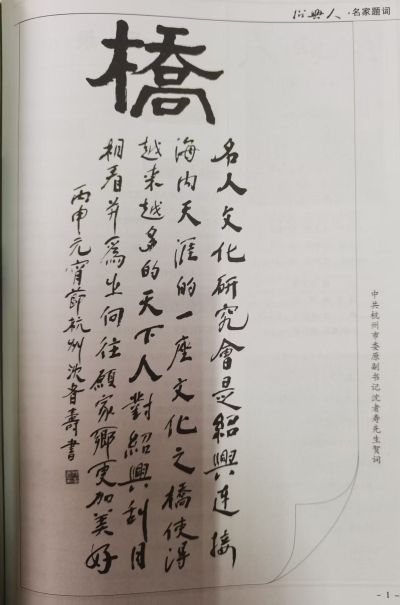 绍興人·名家题词
橋
名人文化研究會是紹興连接
海内天涯的一座文化之橋使得
越来越多的天下人對紹興刮目
相看并爲之向往願家鄉更加美好
丙申元宵節杭州沈者壽書
中共杭州市委原副书记沈者寿先生贺词
- 1 -